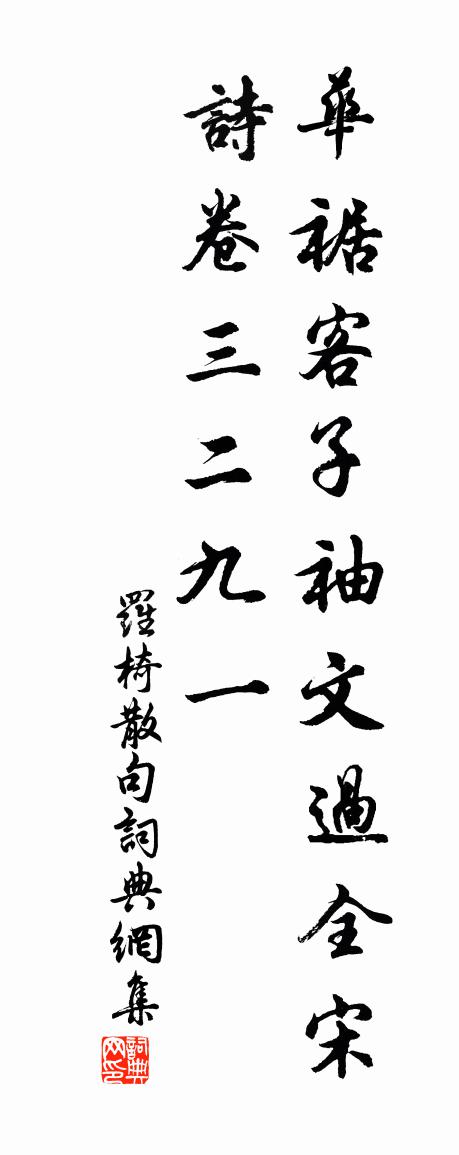 華裾客子袖文過全宋
詩卷三二九一
羅椅散句詞典網集
詞典网印